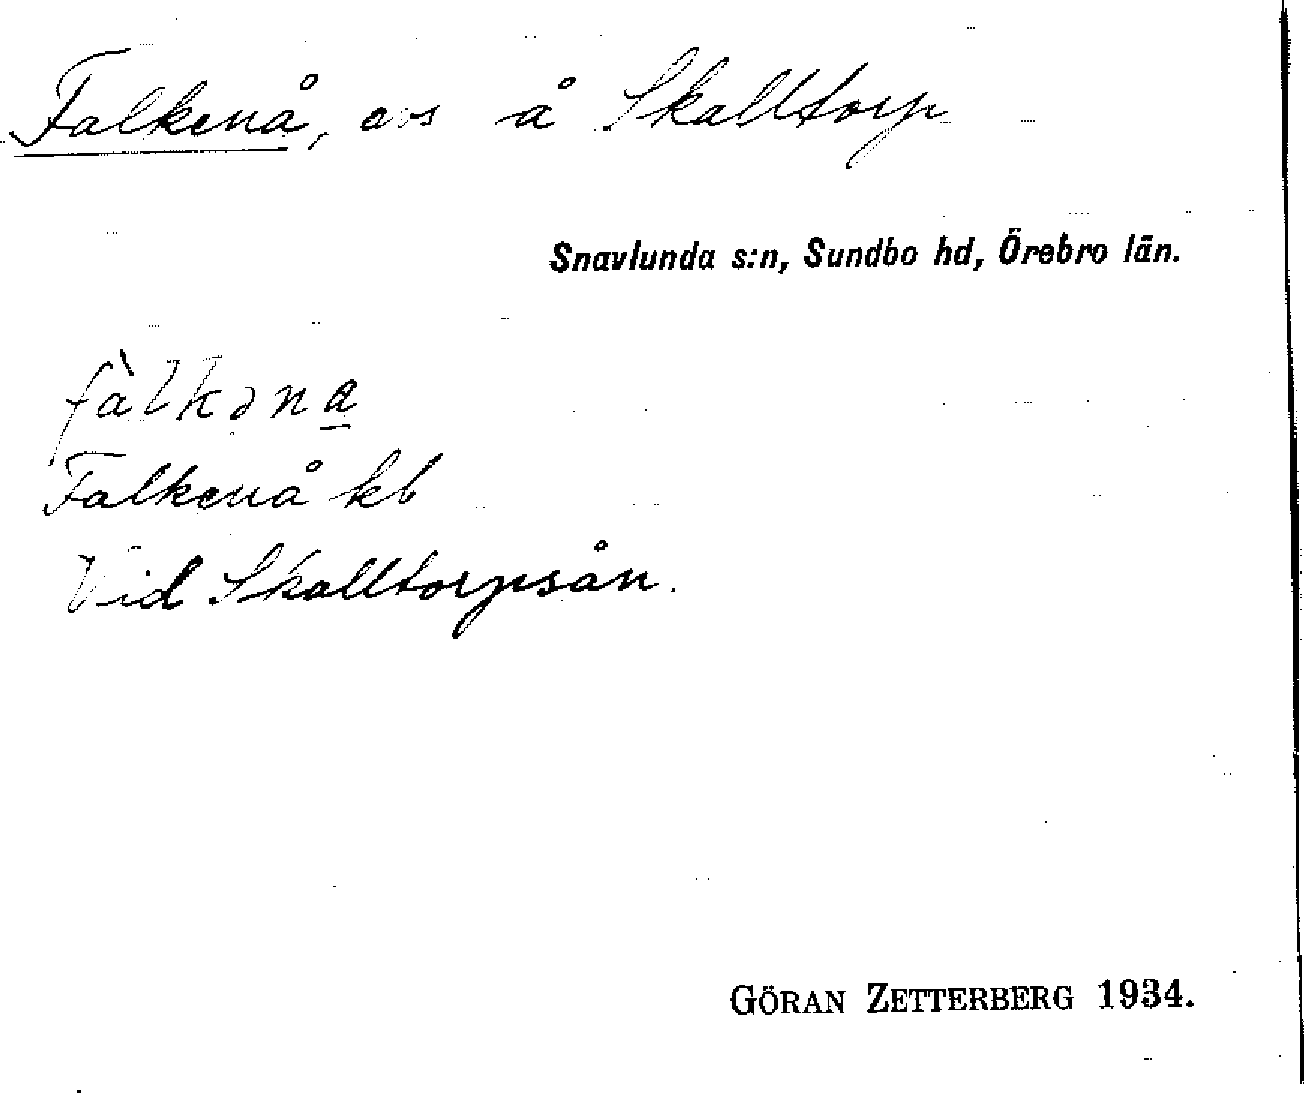 Falkenå, avs å Skalltorp
Snavlunda s:n, Sundbo hd, Örebro län.
fàlkəna
Falkenå kb
Vid Skalltorpsån.
GÖRAN ZETTERBERG 1934.